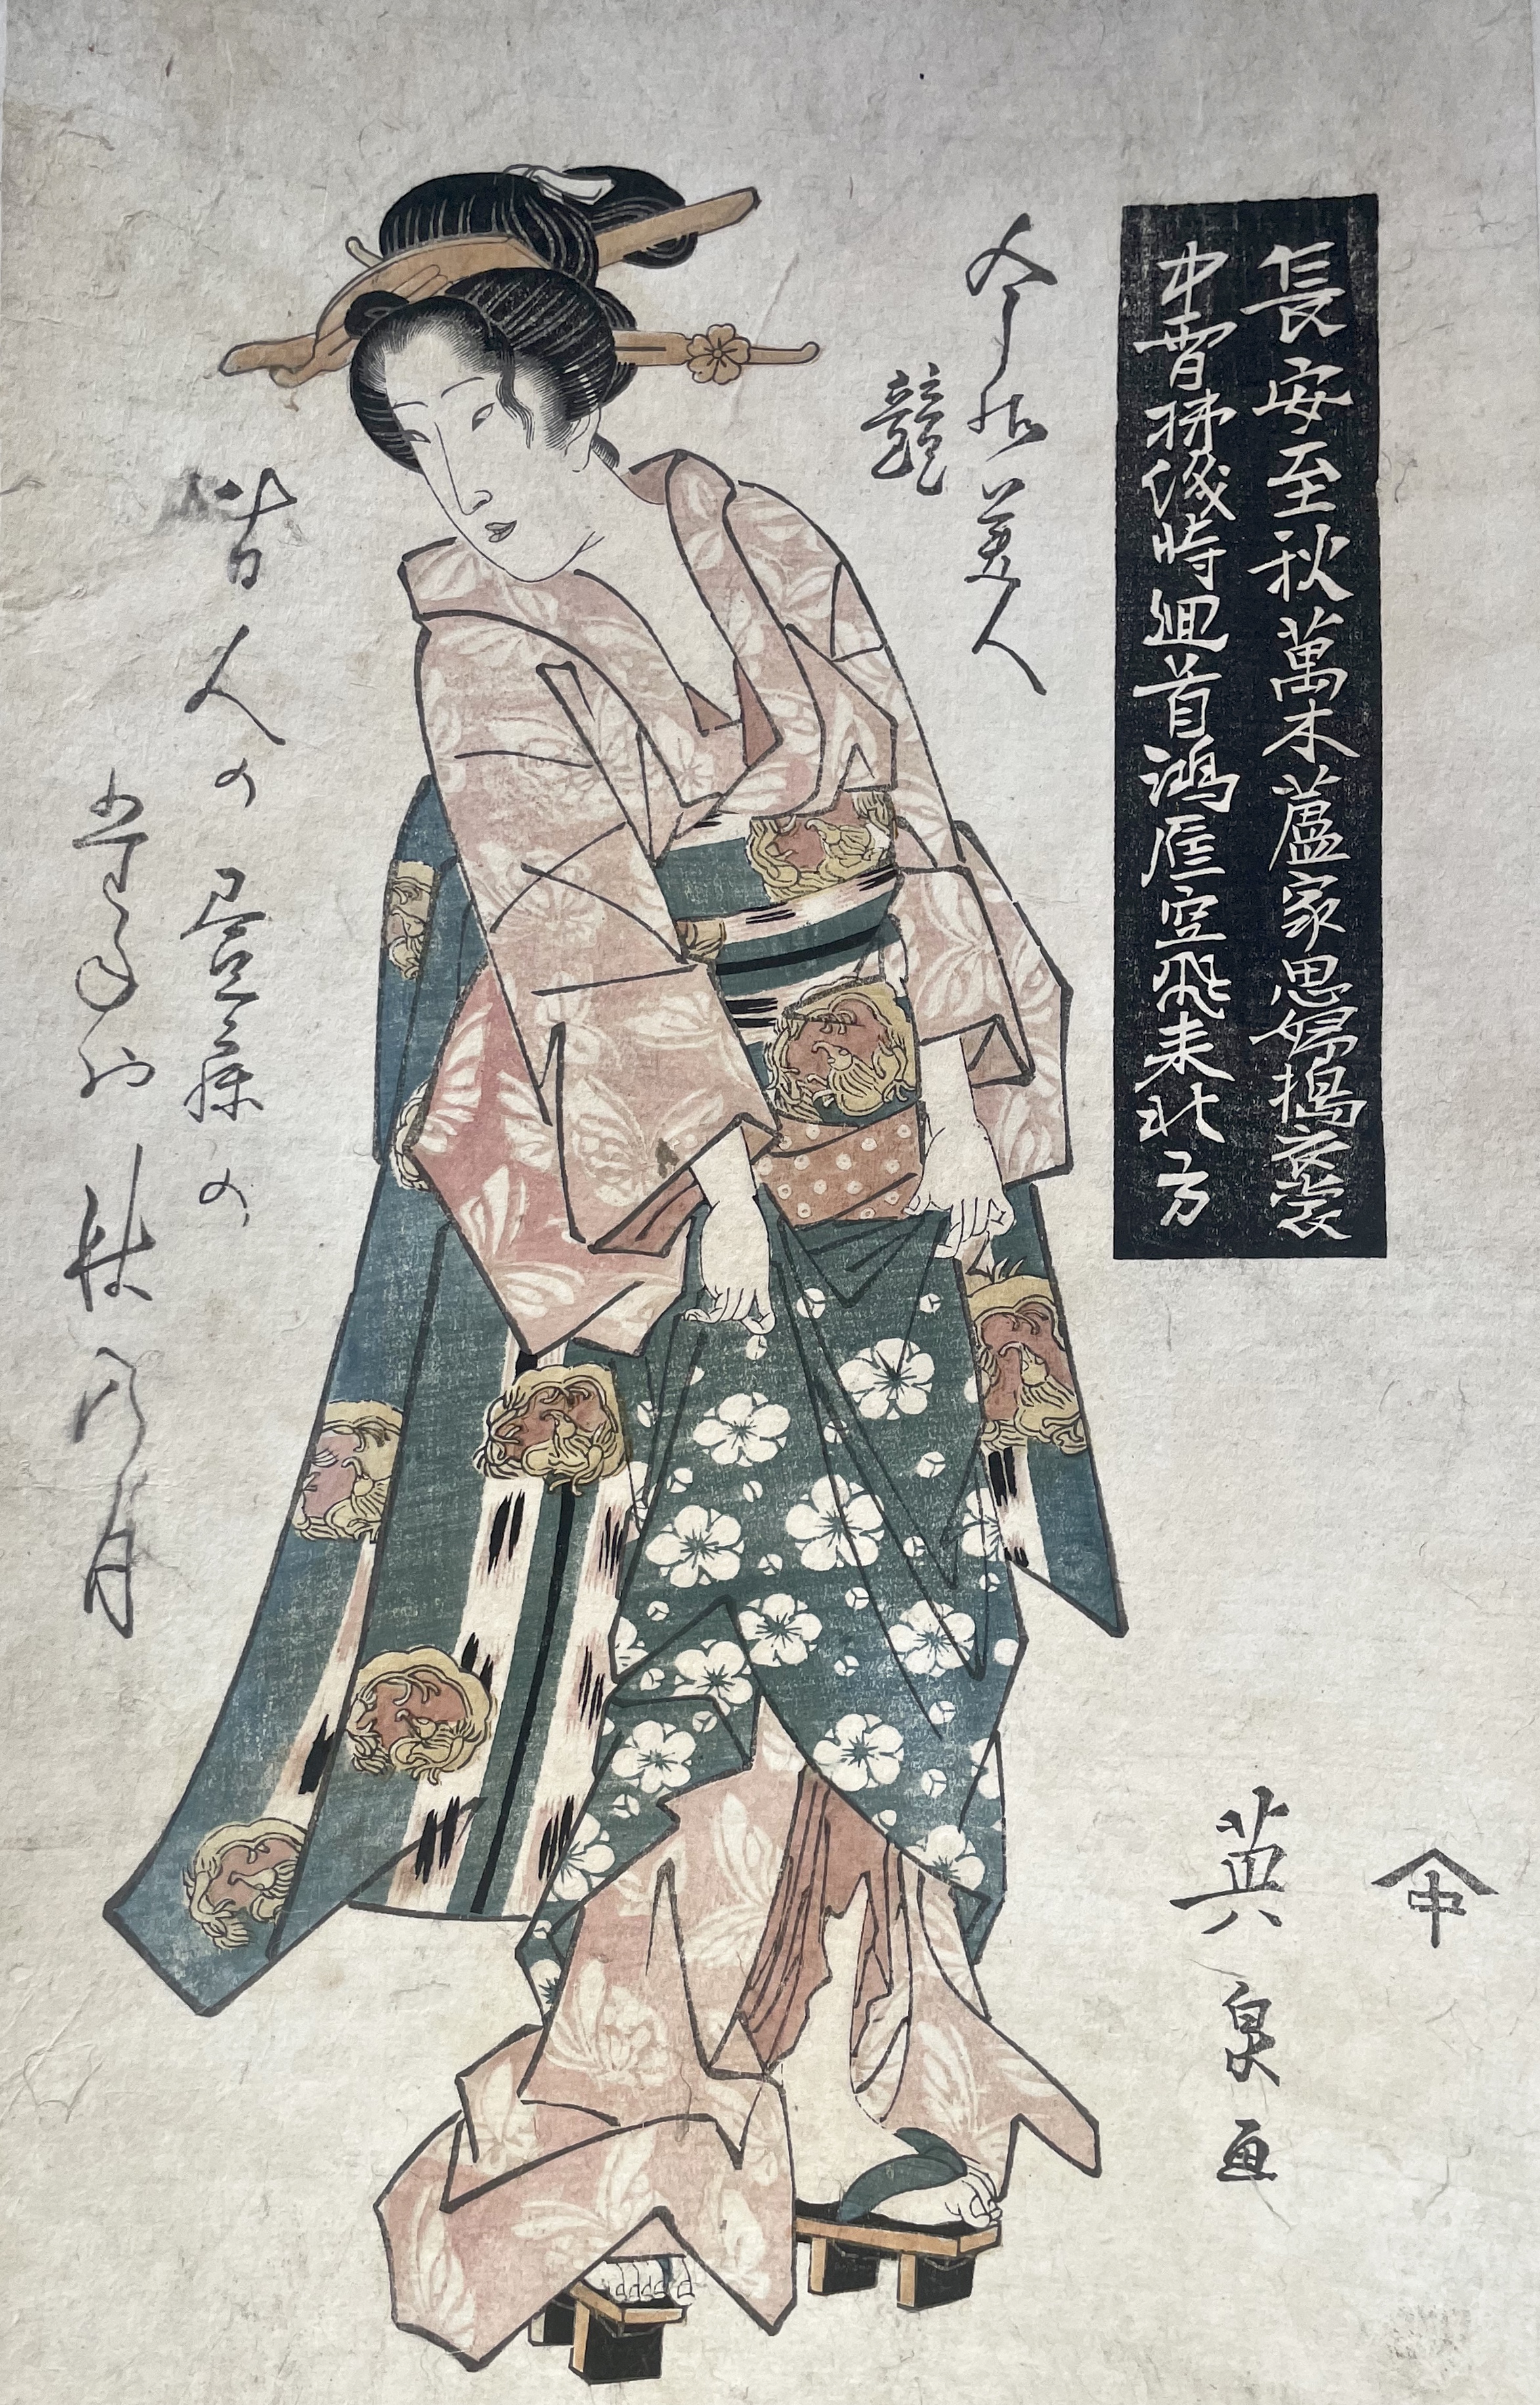 長安至秋萬木蘆家思婦搗衣裳
中 時廻首鴻雁空飛来北方
今 美人
競
昔人の昼寐の
秋乃月
中
英泉画